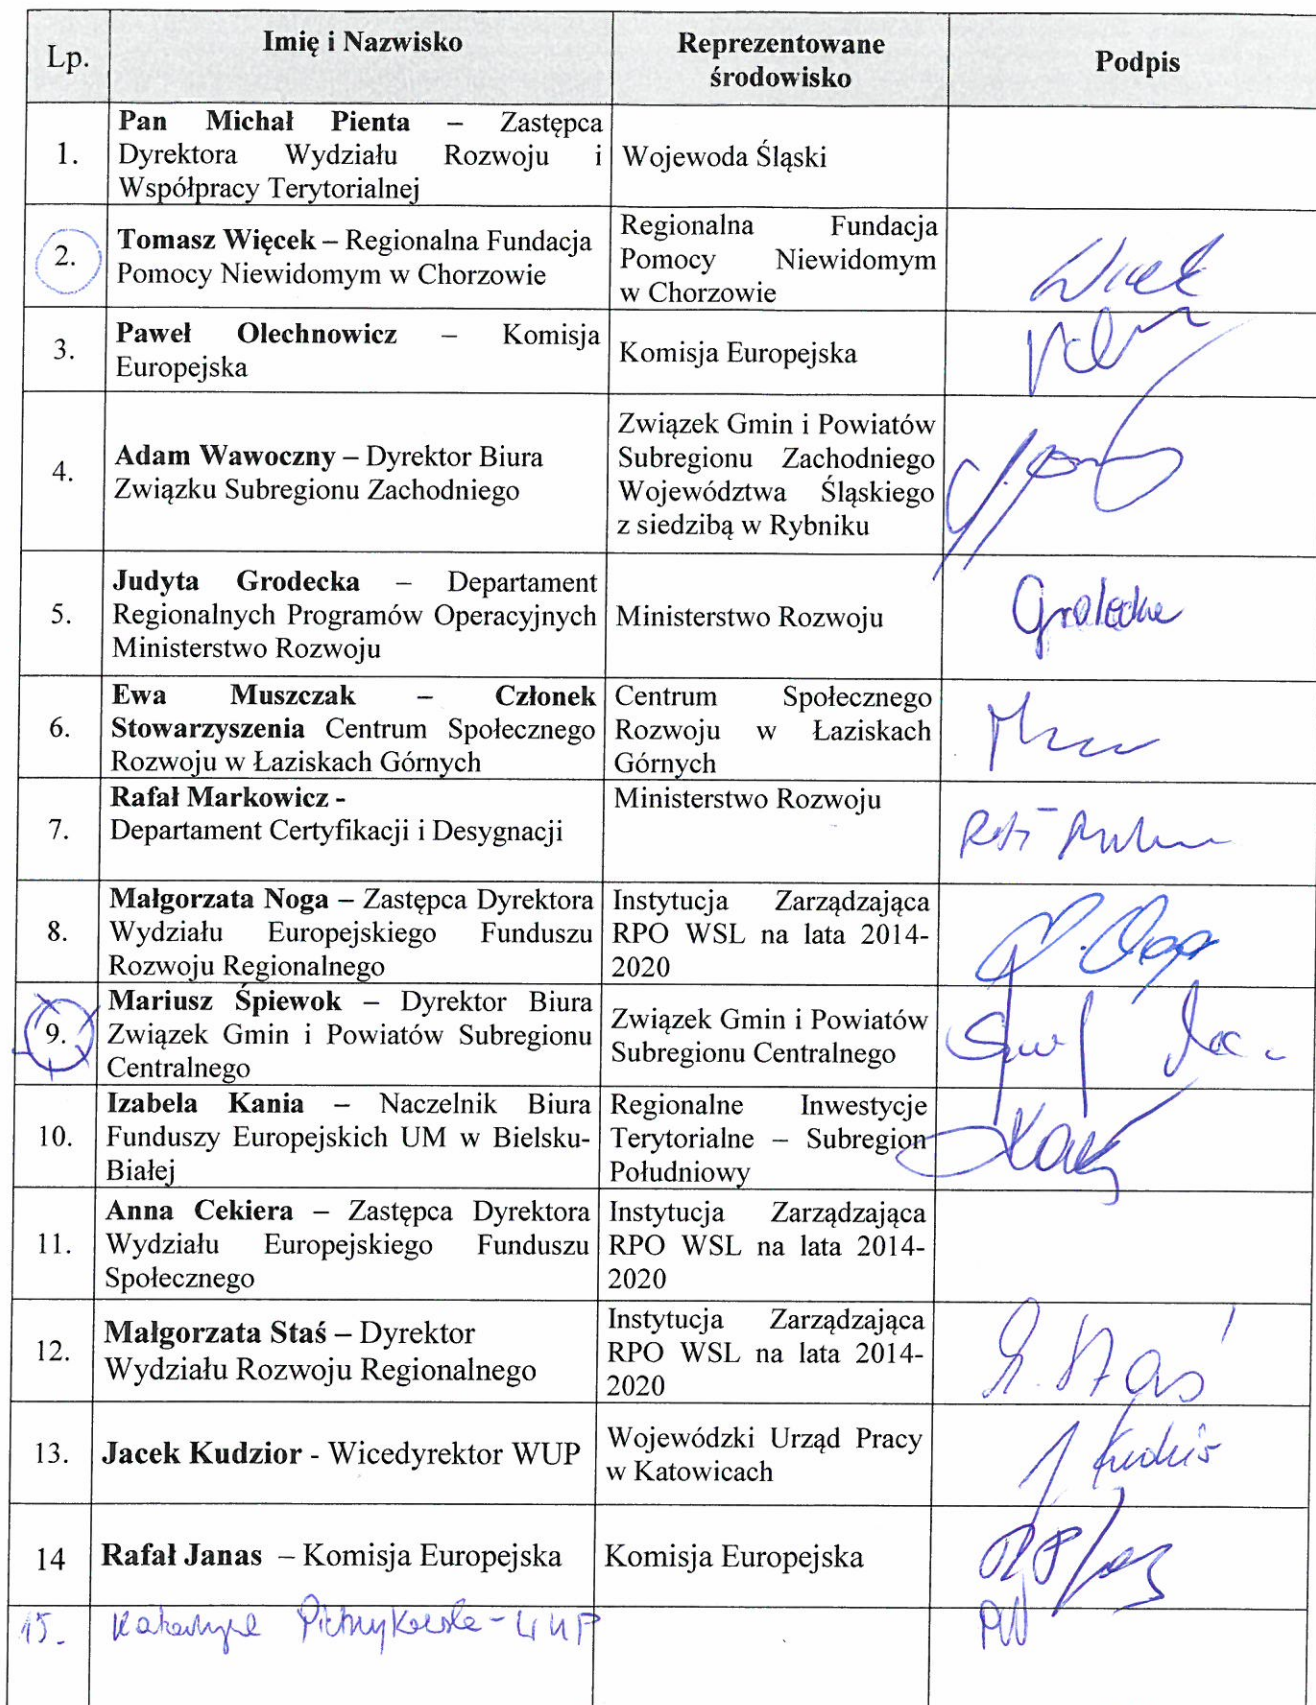 Lp.
Imię i Nazwisko
Reprezentowane
środowisko
Podpis
1.
Pan Michał Pienta – Zastępca
Dyrektora Wydziału Rozwoju i
Współpracy Terytorialnej
Wojewoda Śląski
2.
Tomasz Więcek – Regionalna Fundacja
Pomocy Niewidomym w Chorzowie
Regionalna Fundacja
Pomocy Niewidomym
w Chorzowie
3.
Paweł Olechnowicz – Komisja
Europejska
Komisja Europejska
4.
Adam Wawoczny – Dyrektor Biura
Związku Subregionu Zachodniego
Związek Gmin i Powiatów
Subregionu Zachodniego
Województwa Śląskiego
z siedzibą w Rybniku
5.
Judyta Grodecka – Departament
Regionalnych Programów Operacyjnych
Ministerstwo Rozwoju
Ministerstwo Rozwoju
6.
Ewa Muszczak – Członek
Stowarzyszenia Centrum Społecznego
Rozwoju w Łaziskach Górnych
Centrum Społecznego
Rozwoju w Łaziskach
Górnych
7.
Rafał Markowicz -
Departament Certyfikacji i Desygnacji
Ministerstwo Rozwoju
8.
Małgorzata Noga – Zastępca Dyrektora
Wydziału Europejskiego Funduszu
Rozwoju Regionalnego
Instytucja Zarządzająca
RPO WSL na lata 2014-
2020
9.
Mariusz Śpiewok – Dyrektor Biura
Związek Gmin i Powiatów Subregionu
Centralnego
Związek Gmin i Powiatów
Subregionu Centralnego
10.
Izabela Kania – Naczelnik Biura
Funduszy Europejskich UM w Bielsku-
Białej
Regionalne Inwestycje
Terytorialne – Subregion
Południowy
11.
Anna Cekiera – Zastępca Dyrektora
Wydziału Europejskiego Funduszu
Społecznego
Instytucja Zarządzająca
RPO WSL na lata 2014-
2020
12.
Małgorzata Staś – Dyrektor
Wydziału Rozwoju Regionalnego
Instytucja Zarządzająca
RPO WSL na lata 2014-
2020
M. Staś
13.
Jacek Kudzior - Wicedyrektor WUP
Wojewódzki Urząd Pracy
w Katowicach
J Kudzior
14
Rafał Janas – Komisja Europejska
Komisja Europejska
15.